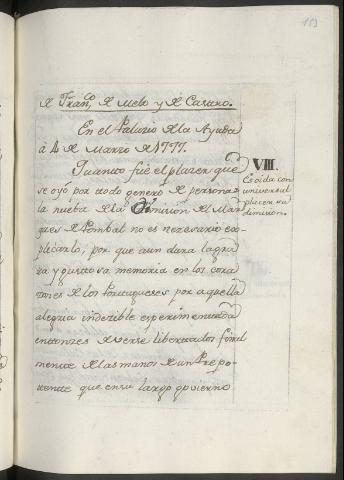 153
de Franco, de Melo y de Castro.
En el Palazio de la Ayuda
à 4 de Marzo de 1777.
Quanto fue el plazer que
se oyó por todo genero de personas
la nueba de la Dimision del Mar
ques de Pombal no es necesario ex
plicarlo, por que aun dura la gra
ta y gustosa memoria en los cora
zones de los Portugueses por aquella
alegria indezible esperimentada
entonzes de verse libertados final
mente de las manos de un Prepo
tente que en su largo govierno
VIII.
Es oida con
universal
plazer su
dimision.